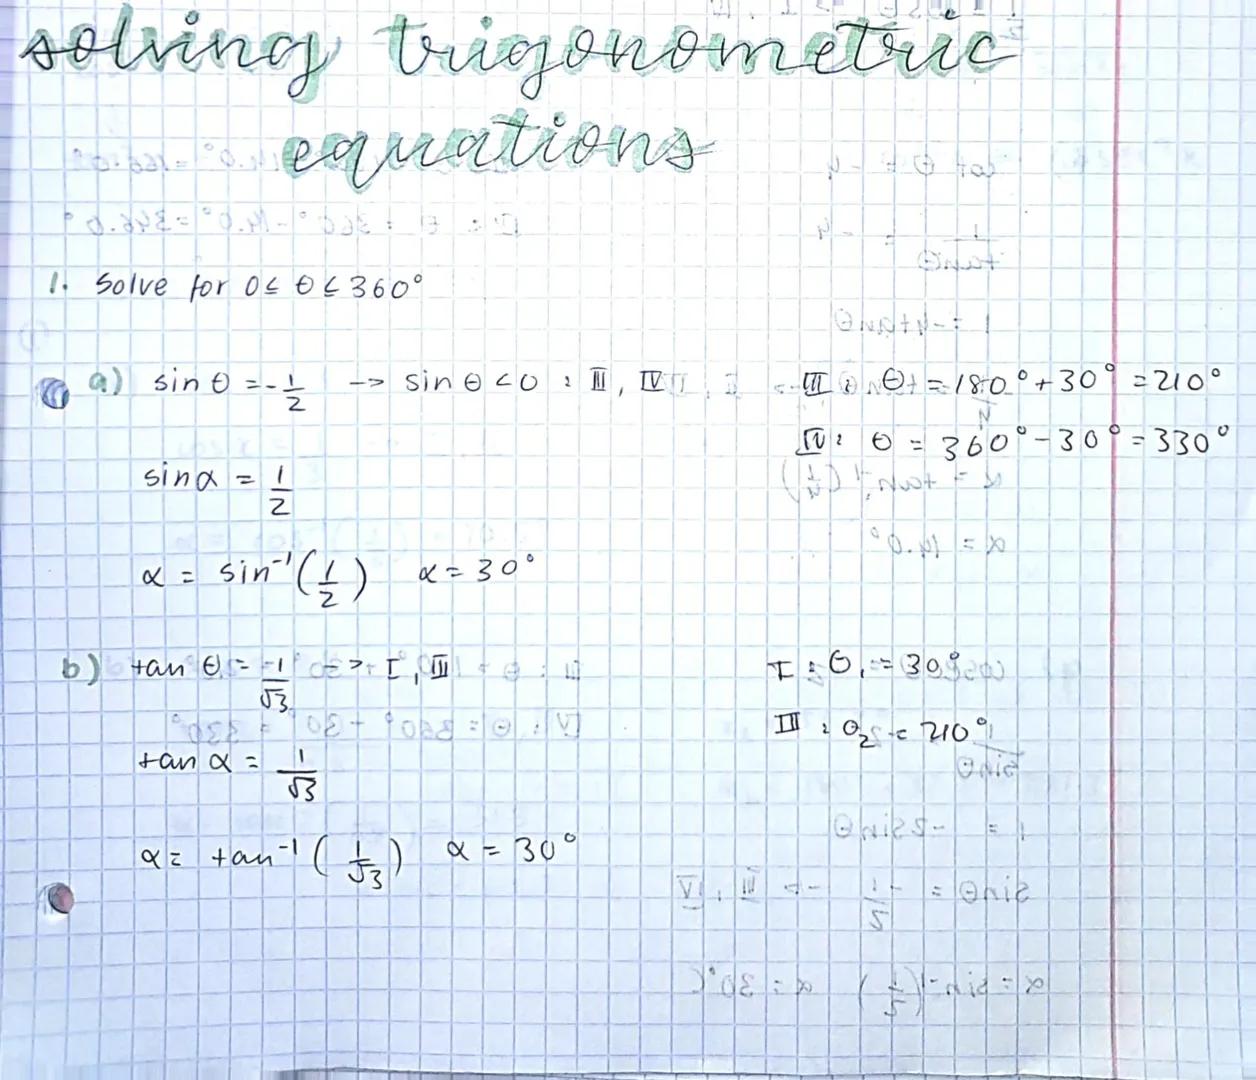 solving trigonometric
equations
1. Solve for 0 ≤ θ ≤ 360°
a) sin θ = -1/2 -> sin θ < 0 : III, IV
III : θ = 180° + 30° = 210°
IV : θ = 360° - 30° = 330°
sin α = 1/2
α = sin⁻¹(1/2) α = 30°
b) tan θ = 1/√3 -> I, III
I : θ₁ = 30°
III : θ₂ = 210°
tan α = 1/√3
α = tan⁻¹(1/√3) α = 30°